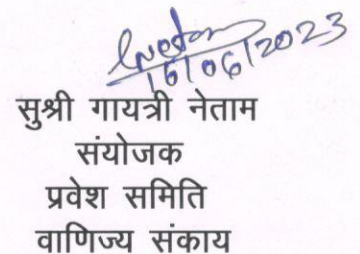 16/06/2023
सुश्री गायत्री नेताम
संयोजक
प्रवेश समिति
वाणिज्य संकाय